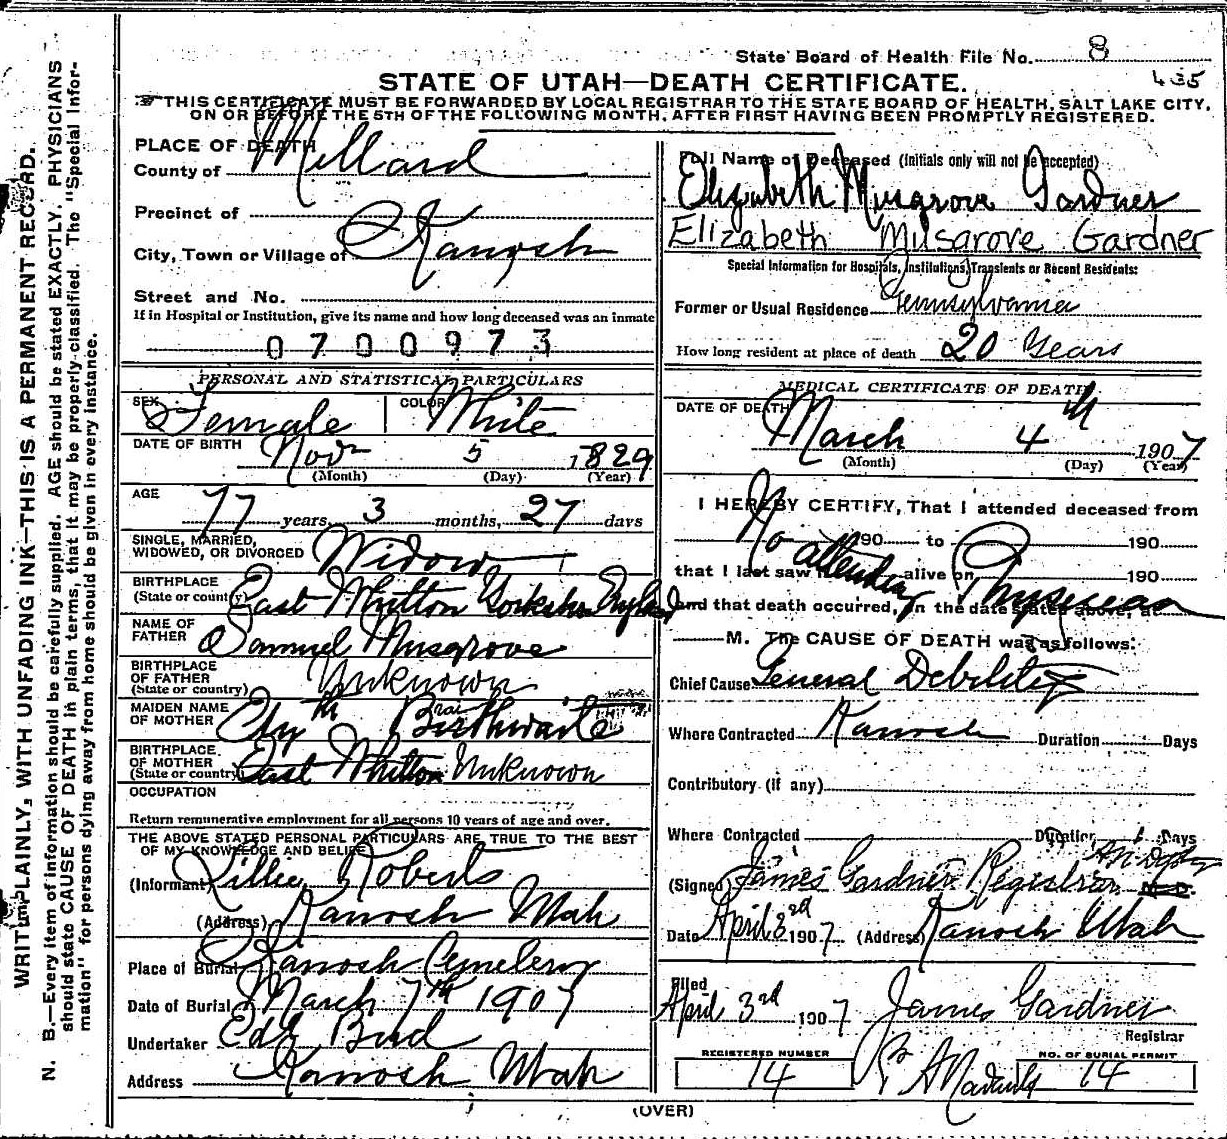 State Board of Health File No. 8
435
STATE OF UTAH—DEATH CERTIFICATE.
THIS CERTIFICATE MUST BE FORWARDED BY LOCAL REGISTRAR TO THE STATE BOARD OF HEALTH, SALT LAKE CITY,
ON OR BEFORE THE 5TH OF THE FOLLOWING MONTH, AFTER FIRST HAVING BEEN PROMPTLY REGISTERED.
WRITE PLAINLY, WITH UNFADING INK—THIS IS A PERMANENT RECORD.
N. B.—Every item of information should be carefully supplied. AGE should be stated EXACTLY. PHYSICIANS
should state CAUSE OF DEATH in plain terms, that it may be properly classified. The "Special Infor-
mation" for persons dying away from home should be given in every instance.
PLACE OF DEATH
County of Millard
Precinct of
City, Town or Village of Kanosh
Street and No.
If in Hospital or Institution, give its name and how long deceased was an inmate
0700973
PERSONAL AND STATISTICAL PARTICULARS
SEX Female COLOR White
DATE OF BIRTH Nov 5 1829
(Month) (Day) (Year)
AGE
77 years, 3 months, 27 days
SINGLE, MARRIED,
WIDOWED, OR DIVORCED Widow
BIRTHPLACE
(State or country) East Whitton Yorkshire England
NAME OF
FATHER Samuel Musgrove
BIRTHPLACE
OF FATHER Unknown
(State or country)
MAIDEN NAME
OF MOTHER
BIRTHPLACE
OF MOTHER
(State or country) East Whitton Unknown
OCCUPATION
Return remunerative employment for all persons 10 years of age and over.
THE ABOVE STATED PERSONAL PARTICULARS ARE TRUE TO THE BEST
OF MY KNOWLEDGE AND BELIEF
(Informant) Lillie Roberts
(Address) Kanosh Utah
Place of Burial Kanosh Cemetery
Date of Burial March 7th 1907
Undertaker Bird
Address Kanosh Utah
Full Name of Deceased (Initials only will not be accepted)
Elizabeth Musgrove Gardner
Elizabeth Musgrove Gardner
Special Information for Hospitals, Institutions, Transients or Recent Residents:
Former or Usual Residence Pennsylvania
How long resident at place of death 20 Years
MEDICAL CERTIFICATE OF DEATH
DATE OF DEATH March 4th 1907
(Month) (Day) (Year)
I HEREBY CERTIFY, That I attended deceased from
No 190 to 190
that I last saw h attending alive on Physician 190
and that death occurred, on the date stated above, at
M. The CAUSE OF DEATH was as follows:
Chief Cause General Debility
Where Contracted Kanosh Duration Days
Contributory (if any)
Where Contracted Duration Days
(Signed) James Gardner Registrar M. D.
Date April 3rd 1907 (Address) Kanosh Utah
Filed
April 3rd 1907 James Gardner
Registrar
REGISTERED NUMBER
14
NO. OF BURIAL PERMIT
14
(OVER)